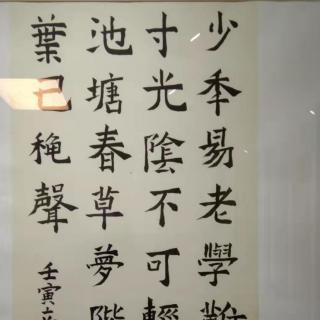 少秊易老學難
寸光陰不可輕
池塘春草夢階
葉已穐聲
壬寅